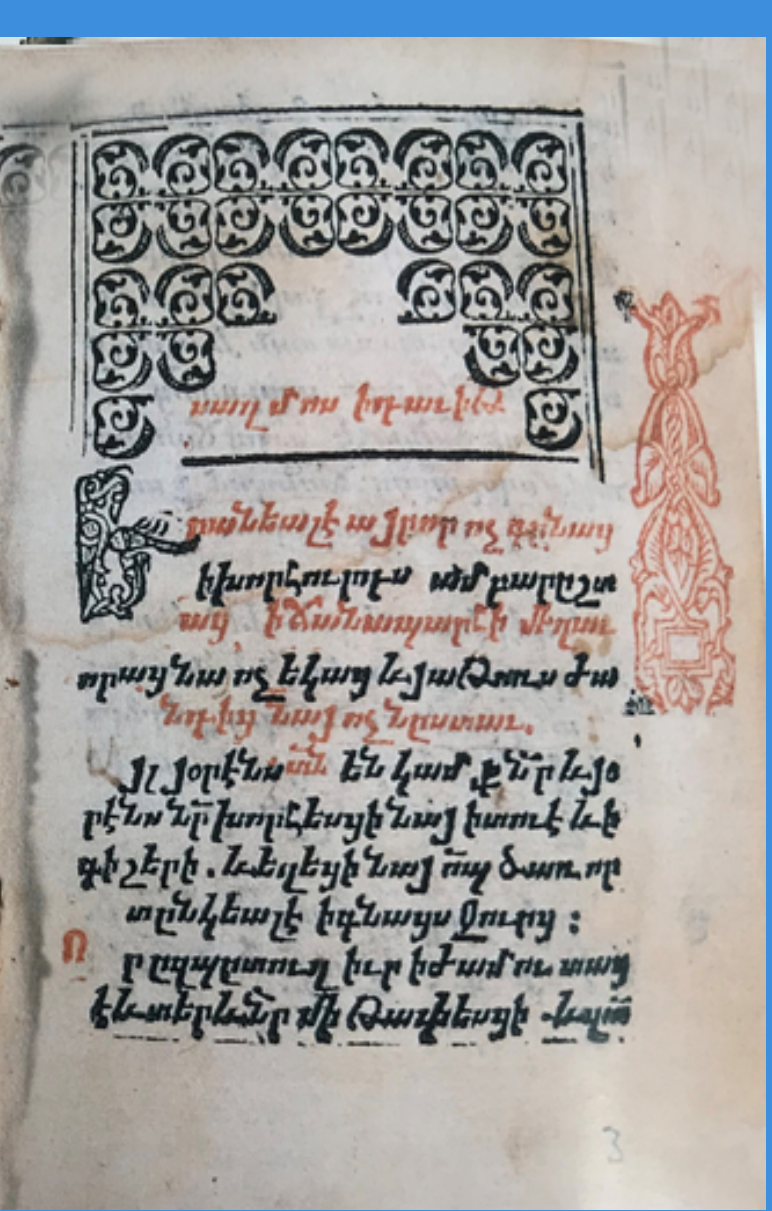 սաղմոս ի դաւիթ
Երանեալ է այրոր ոչ գնաց
ի խորհուրդս ամբարըշտ
աց ի ճանապարհի մեղաւ
որացնա ոչ եկաց և յաթոռս ժա
նդից նայ ոչ նըստաւ.
յլ յօրէնս տն են կամք նր և յօ
րէնս նր խորհեսցի նայ ի տուէ և ի
գիշերի . և եղեցի նայ որպ ծառ որ
տընկեալ է ի գնացս ջուրց :
Ո
ր ըզպըտուղ իւր ի ժամու տաց
է և տերև նր մի թափեսցի
3